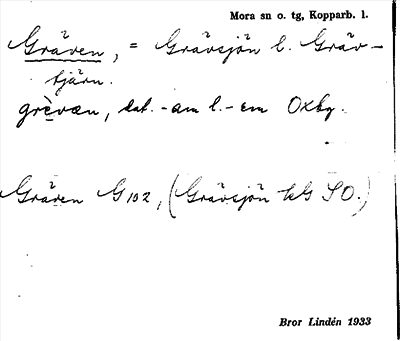 Mora sn o. tg, Kopparb. l.
Gräven, = Grävsjön l. Gräv-
tjärn.
grèvæn, dat. -am l. -em Oxbg.
Gräven G 102, (Grävsjön kG SO.)
Bror Lindén 1933